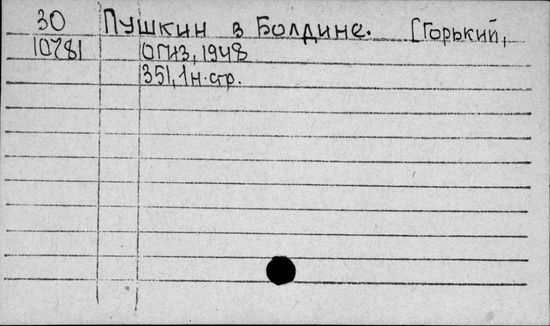 30 Пушкин в Болдине. [Горький,
10781 ОГИЗ, 1948
351, 1 н. стр.